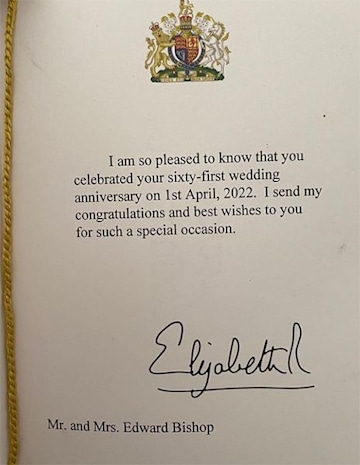 I am so pleased to know that you
celebrated your sixty-first wedding
anniversary on 1st April, 2022. I send my
congratulations and best wishes to you
for such a special occasion.
Elizabeth R
Mr. and Mrs. Edward Bishop